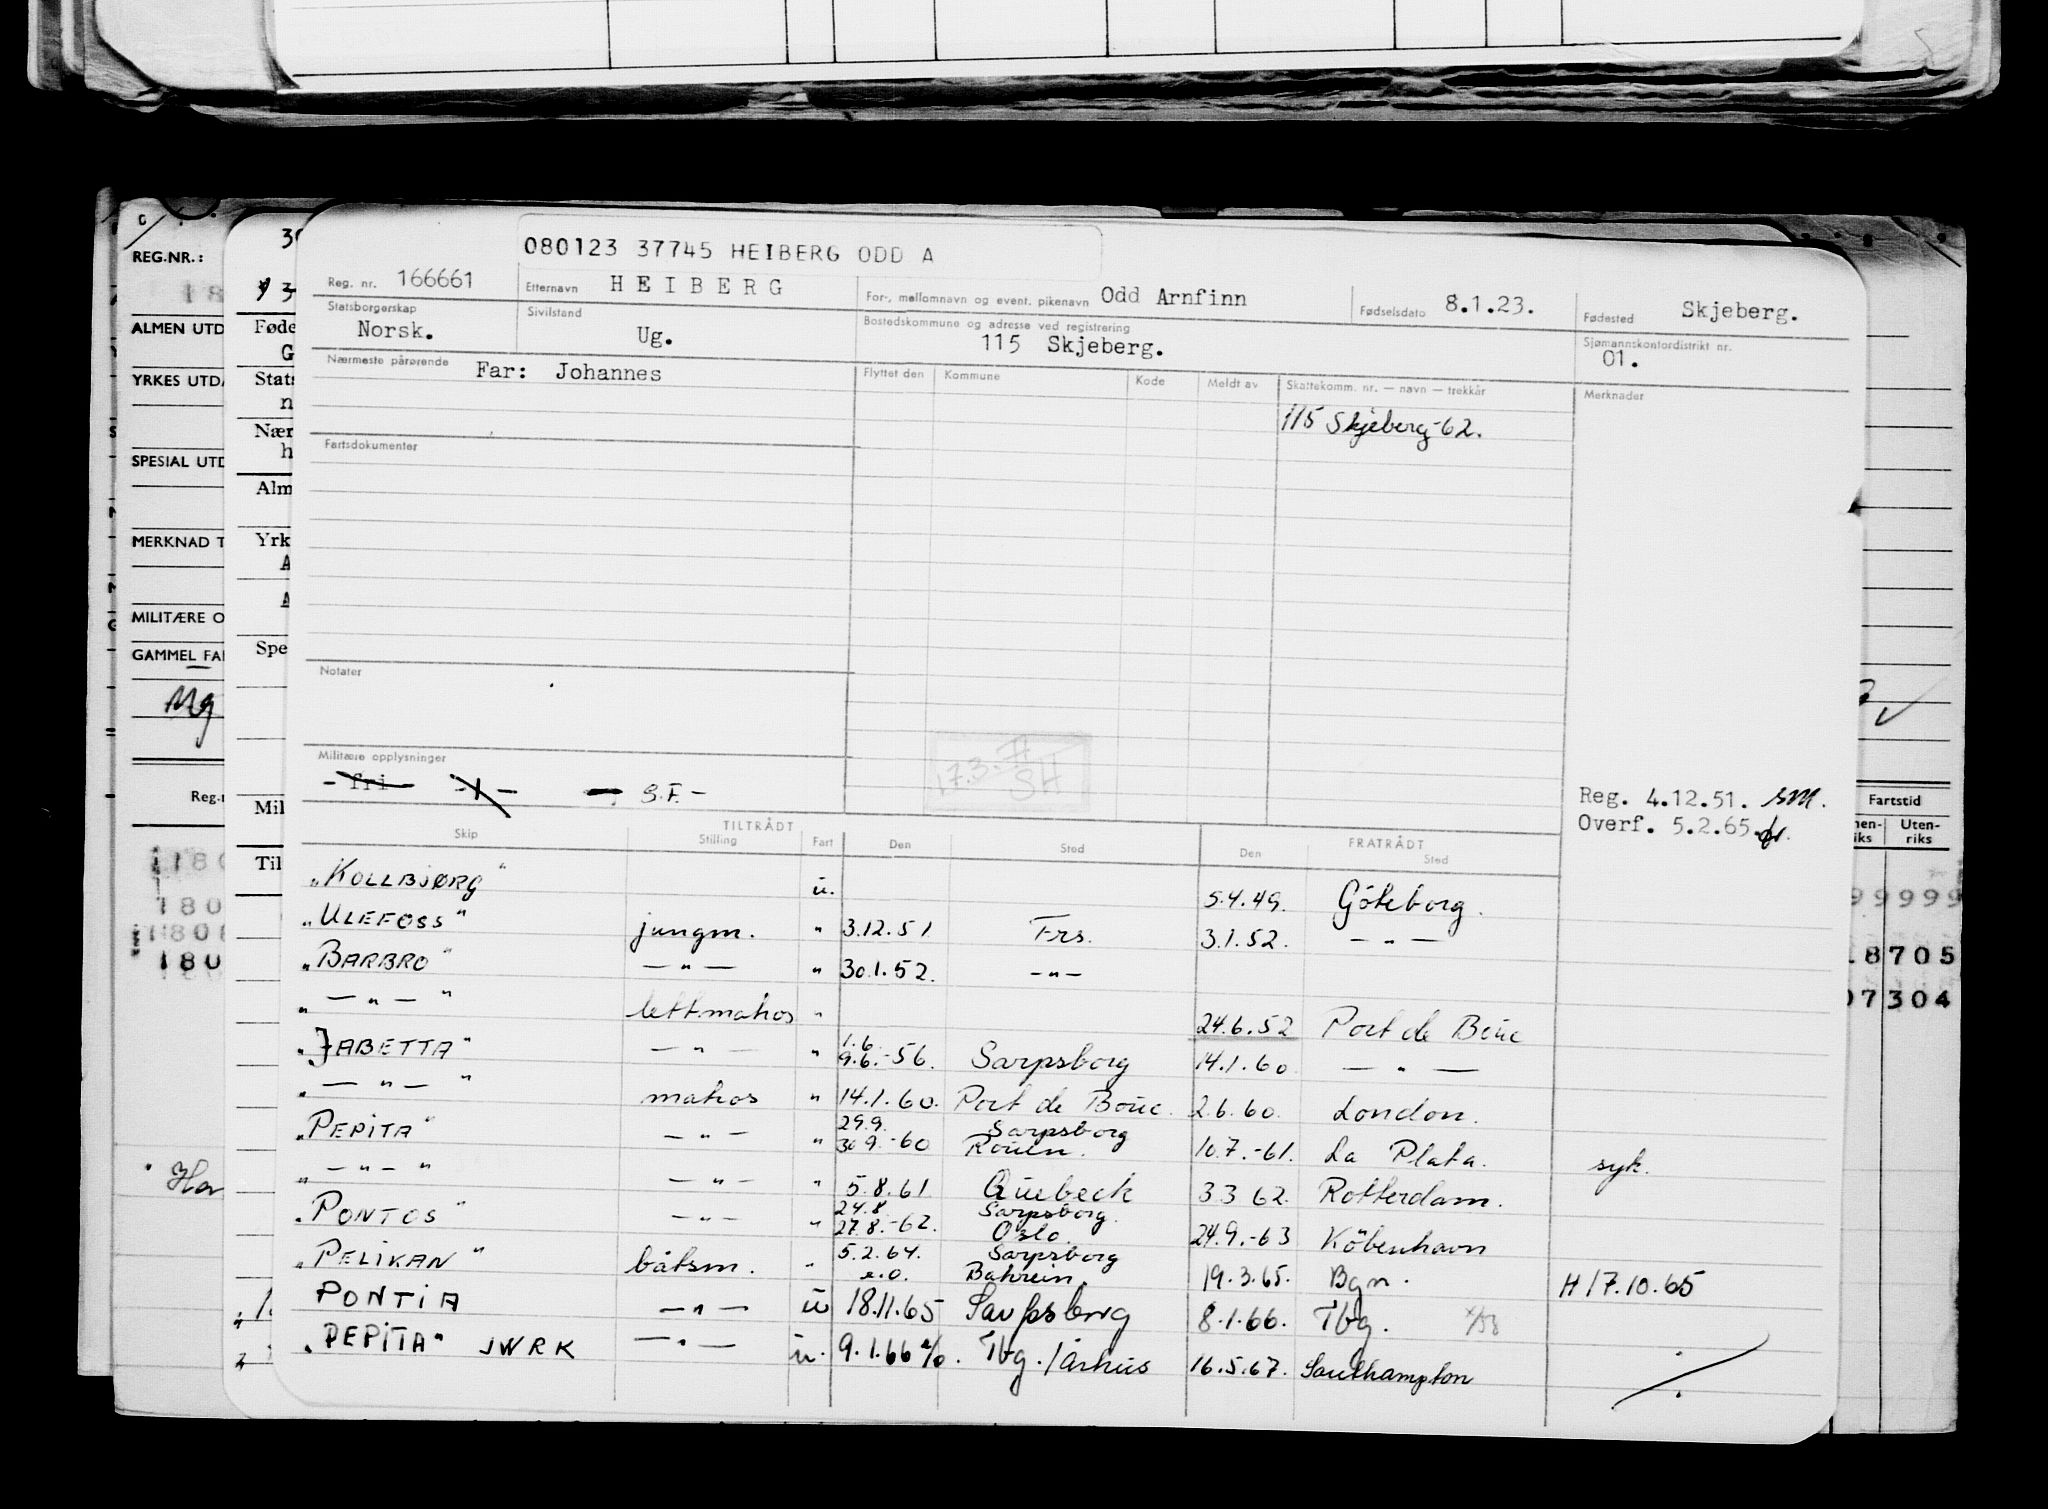 080123 37745 HEIBERG ODD A
Reg. nr. 166661 Etternavn HEIBERG For-, mellomnavn og event. pikenavn Odd Arnfinn Fødselsdato 8.1.23. Fødested Skjeberg.
Statsborgerskap Norsk. Sivilstand Ug. Bostedskommune og adresse ved registrering 115 Skjeberg. Sjømannskontordistrikt nr. 01.
Nærmeste pårørende Far: Johannes Flyttet den Kommune Kode Meldt av Skattekomm. nr. — navn — trekkår Merknader
115 Skjeberg-62.
Fartsdokumenter
Notater
17.3. SH
Militære opplysninger
- fri - S.F. -
Reg. 4.12.51. SM.
Overf. 5.2.65.
TILTRÅDT FRATRÅDT
Skip Stilling Fart Den Sted Den Sted
"KOLLBJØRG" u. 5.4.49. Göteborg.
"ULEFOSS" jungm. " 3.12.51 Frs. 3.1.52. — " —
"BARBRO" — " — " 30.1.52. — " —
" — " — " lettmatros " 24.6.52 Port de Bouc
"JABETTA" — " — " 1.6. 9.6.-56. Sarpsborg 14.1.60 — " —
" — " — " matros " 14.1.60. Port de Bouc. 2.6.60. London.
"PEPITA" — " — " 29.9. 30.9.-60 Sarpsborg Rouen. 10.7.-61. La Plata. syk.
" — " — " — " — " 5.8.61 Quebeck 3.3.62. Rotterdam.
"PONTOS" — " — " 24.8. 27.8.-62. Sarpsborg. Oslo. 24.9.-63 Köbenhavn
"PELIKAN" båtsm. " 5.2.64. e.o. Sarpsborg Bahrein. 19.3.65. Bgn. H 17.10.65
PONTIA — " — u 18.11.65 Sarpsborg 8.1.66. Tbg.
"PEPITA" JWRK — " — u. 9.1.66 e/o. Tbg./Århus 16.5.67. Southampton
REG.NR.:
ALMEN UTD
YRKES UTDA
SPESIAL UTD
MERKNAD T
MILITÆRE O
GAMMEL FAR
Mg
Reg.
180
180
180
Føde
G
Stats
n
Nær
h
Alm
Yrk
A
A
Spe
Mil
Til
Fartstid
Uten-
riks
99999
18705
07304